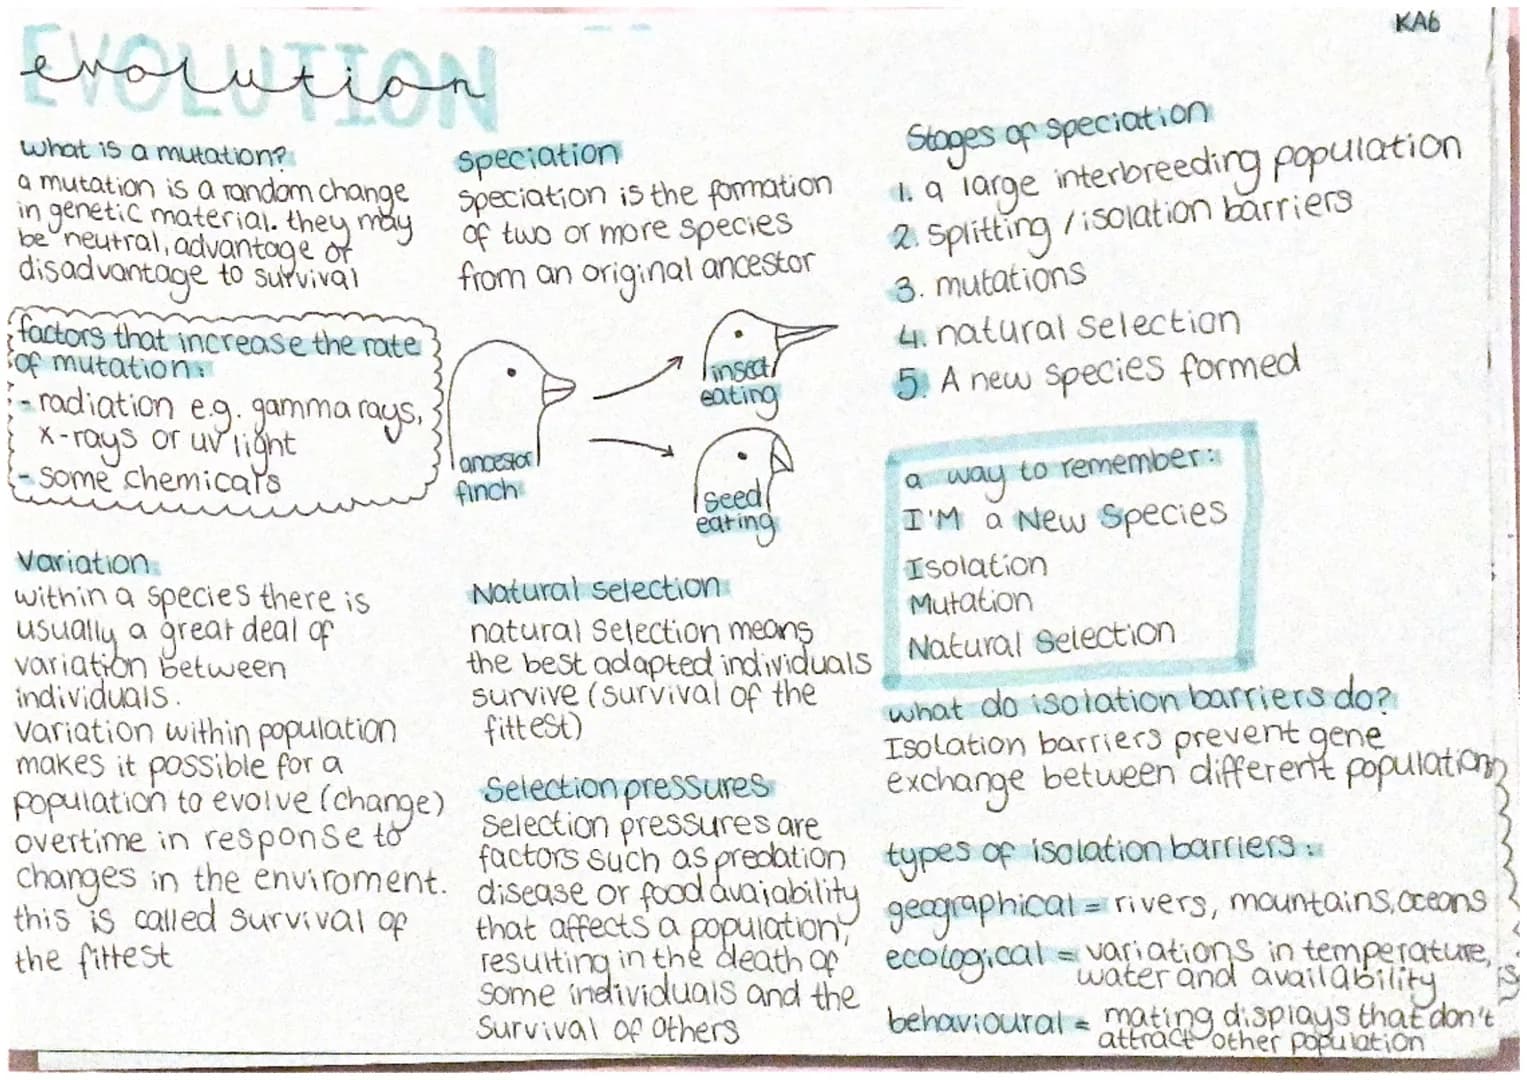 KA6
EVOLUTION
evolution
what is a mutation?
a mutation is a random change
in genetic material. they may
be neutral, advantage or
disadvantage to survival
factors that increase the rate
of mutation:
- radiation e.g. gamma rays,
x-rays or uv light
- some chemicals
variation
within a species there is
usually a great deal of
variation between
individuals.
variation within population
makes it possible for a
population to evolve (change)
overtime in response to
changes in the enviroment.
this is called survival of
the fittest
speciation
speciation is the formation
of two or more species
from an original ancestor
ancestor
finch
insect
eating
seed
eating
Natural selection
natural selection means
the best adapted individuals
survive (survival of the
fittest)
Selection pressures
selection pressures are
factors such as predation
disease or food avaiability
that affects a population,
resulting in the death of
some individuals and the
survival of others
Stages of speciation
1. a large interbreeding population
2. splitting / isolation barriers
3. mutations
4. natural selection
5. A new species formed
a way to remember:
I'M a New Species
Isolation
Mutation
Natural Selection
what do isolation barriers do?
Isolation barriers prevent gene
exchange between different population
types of isolation barriers:
geographical = rivers, mountains, oceans
ecological = variations in temperature,
water and availability
behavioural = mating displays that don't
attract other population